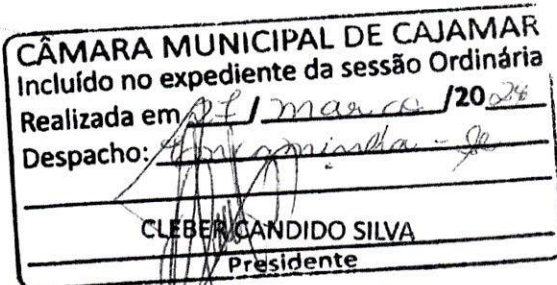 CÂMARA MUNICIPAL DE CAJAMAR
Incluído no expediente da sessão Ordinária
Realizada em / março /20
Despacho: Encaminha-se
CLEBER CANDIDO SILVA
Presidente